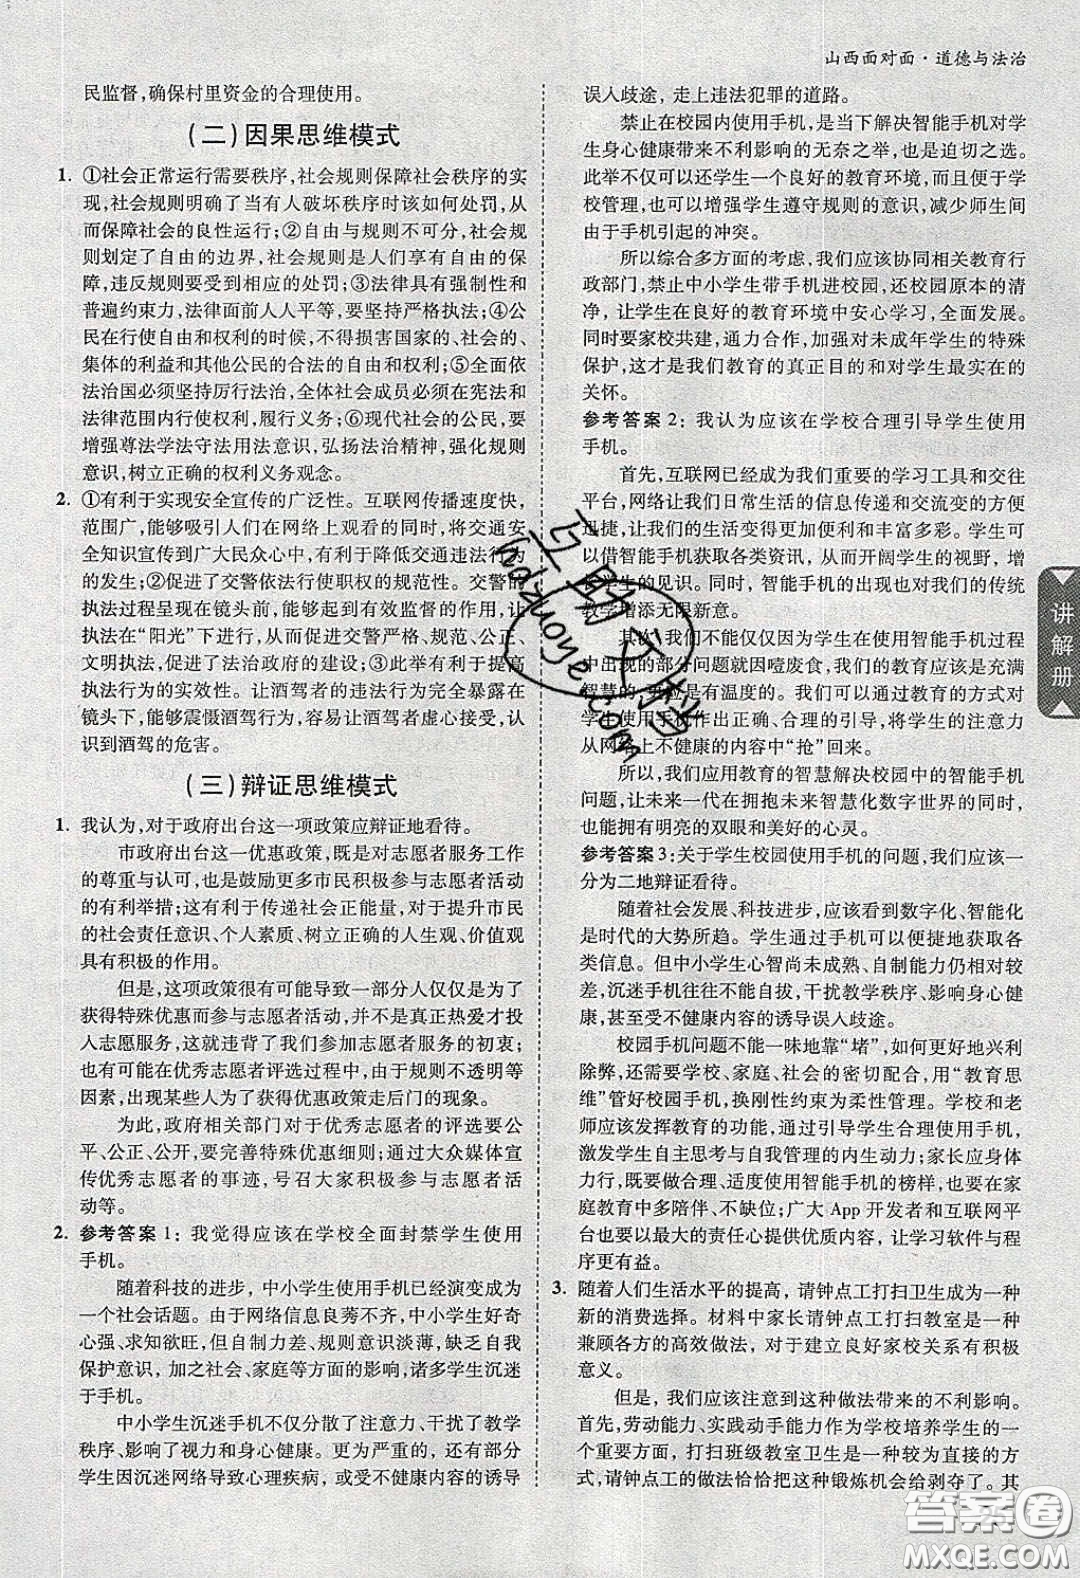 山西面对面·道德与法治
民监督,确保村里资金的合理使用。
(二)因果思维模式
1. ①社会正常运行需要秩序,社会规则保障社会秩序的实
现,社会规则明确了当有人破坏秩序时该如何处罚,从
而保障社会的良性运行;②自由与规则不可分,社会规
则划定了自由的边界,社会规则是人们享有自由的保
障,违反规则要受到相应的处罚;③法律具有强制性和
普遍约束力,法律面前人人平等,要坚持严格执法;④公
民在行使自由和权利的时候,不得损害国家的、社会的、
集体的利益和其他公民的合法的自由和权利;⑤全面依
法治国必须坚持厉行法治,全体社会成员必须在宪法和
法律范围内行使权利、履行义务;⑥现代社会的公民,要
增强尊法学法守法用法意识,弘扬法治精神,强化规则
意识,树立正确的权利义务观念。
2. ①有利于实现安全宣传的广泛性。互联网传播速度快,
范围广,能够吸引人们在网络上观看的同时,将交通安
全知识宣传到广大民众心中,有利于降低交通违法行为
的发生;②促进了交警依法行使职权的规范性。交警的
执法过程呈现在镜头前,能够起到有效监督的作用,让
执法在“阳光”下进行,促进交警严格、规范、公正、
文明执法,有利于法治政府的建设;③此举有利于提高
执法行为的实效性。让酒驾者的违法行为完全暴露在
镜头下,能够震慑酒驾行为,容易让酒驾者虚心接受,认
识到酒驾的危害。
(三)辩证思维模式
1. 我认为,对于政府出台这一项政策应辩证地看待。
市政府出台这一优惠政策,既是对志愿者服务工作
的尊重与认可,也是鼓励更多市民积极参与志愿者活动
的有利举措;这有利于传递社会正能量,对于提升市民
的社会责任意识、个人素质、树立正确的人生观、价值观
具有积极的作用。
但是,这项政策很有可能导致一部分人仅仅是为了
获得特殊优惠而参与志愿者活动,而不是真正热爱才投
入志愿服务,这就违背了我们参加志愿服务的初衷;
也有可能在优秀志愿者评选过程中,由于规则不透明等
因素,出现某些人为了获得优惠政策走后门的现象。
为此,政府相关部门对于优秀志愿者的评选要公
平、公正、公开,要完善特殊优惠细则;通过大众媒体宣
传优秀志愿者的事迹,号召大家积极参与志愿者活
动等。
2. 参考答案1:我觉得应该在学校全面封禁学生使用
手机。
随着科技的进步,中小学生使用手机已经演变成为
一个社会话题。由于网络信息良莠不齐,中小学生好奇
心强、求知欲旺,但自制力差、规则意识淡薄,缺乏自我
保护意识,加之社会、家庭等方面的影响,诸多学生沉迷
于手机。
中小学生沉迷手机不仅分散了注意力、干扰了教学
秩序、影响了视力和身心健康。更为严重的,还有部分
学生因沉迷网络导致心理疾病,或受不健康内容的诱导
误入歧途,走上违法犯罪的道路。
禁止在校园内使用手机,是当下解决智能手机对学
生身心健康带来不利影响的无奈之举,也是迫切之选。
此举不仅可以还学生一个良好的教育环境,而且便于学
校管理,也可以增强学生遵守规则的意识,减少师生间
由于手机引起的冲突。
所以综合多方面的考虑,我们应该协同相关教育行
政部门,禁止中小学生带手机进校园,还校园原本的清
净,让学生在良好的教育环境中安心学习,全面发展。
同时要家校共建,通力合作,加强对未成年学生的特殊
保护,这才是我们教育的真正目的和对学生最实在的
的关怀。
参考答案2:我认为应该在学校合理引导学生使用
手机。
首先,互联网已经成为我们重要的学习工具和交往
平台,网络让我们日常生活的信息传递和交流变的方便
迅捷,让我们的生活变得更加便利和丰富多彩。学生可
以借智能手机获取各类资讯,从而开阔学生的视野,增
长学生的见识。同时,智能手机的出现也对我们的传统
教学增添无限新意。
其次,我们不能仅仅因为学生在使用智能手机过程
中出现的部分问题就因噎废食,我们的教育应该是充满
智慧的,更应是有温度的。我们可以通过教育的方式对
学生使用手机作出正确、合理的引导,将学生的注意力
从网络上不健康的内容中“抢”回来。
所以,我们应用教育的智慧解决校园中的智能手机
问题,让未来一代在拥抱未来智慧化数字世界的同时,
也能拥有明亮的双眼和美好的心灵。
参考答案3:关于学生校园使用手机的问题,我们应该一
分为二地辩证看待。
随着社会发展、科技进步,应该看到数字化、智能化
是时代的大势所趋。学生通过手机可以便捷地获取各
类信息。但中小学生心智尚未成熟、自制能力仍相对较
差,沉迷手机往往不能自拔,干扰教学秩序、影响身心健
康,甚至受不健康内容的诱导误入歧途。
校园手机问题不能一味地靠“堵”,如何更好地兴利
除弊,还需要学校、家庭、社会的密切配合,用“教育思
维”管好校园手机,换刚性约束为柔性管理。学校和老
师应该发挥教育的功能,通过引导学生合理使用手机,
激发学生自主思考与自我管理的内生动力;家长应身体
力行,既要做合理、适度使用智能手机的榜样,也要在家
庭教育中多陪伴、不缺位;广大App开发者和互联网平
台也应多用心思提供优质内容,让学习软件与与程
程序更有益。
3. 随着人们生活水平的提高,请钟点工打扫卫生成为一种
新的消费选择。材料中家长请钟点工打扫教室是一种
兼顾各方的高效做法,对于建立良好家校关系有积极
意义。
但是,我们应该注意到这种做法带来的不利影响。
首先,劳动能力、实践动手能力作为学校培养学生的一
个重要方面,打扫班级教室卫生是一种较为直接的方
式,请钟点工的做法恰恰把这种锻炼机会给剥夺了。其
讲解册
互助文档
hdzuoye.com
答案圈
MXQE.COM